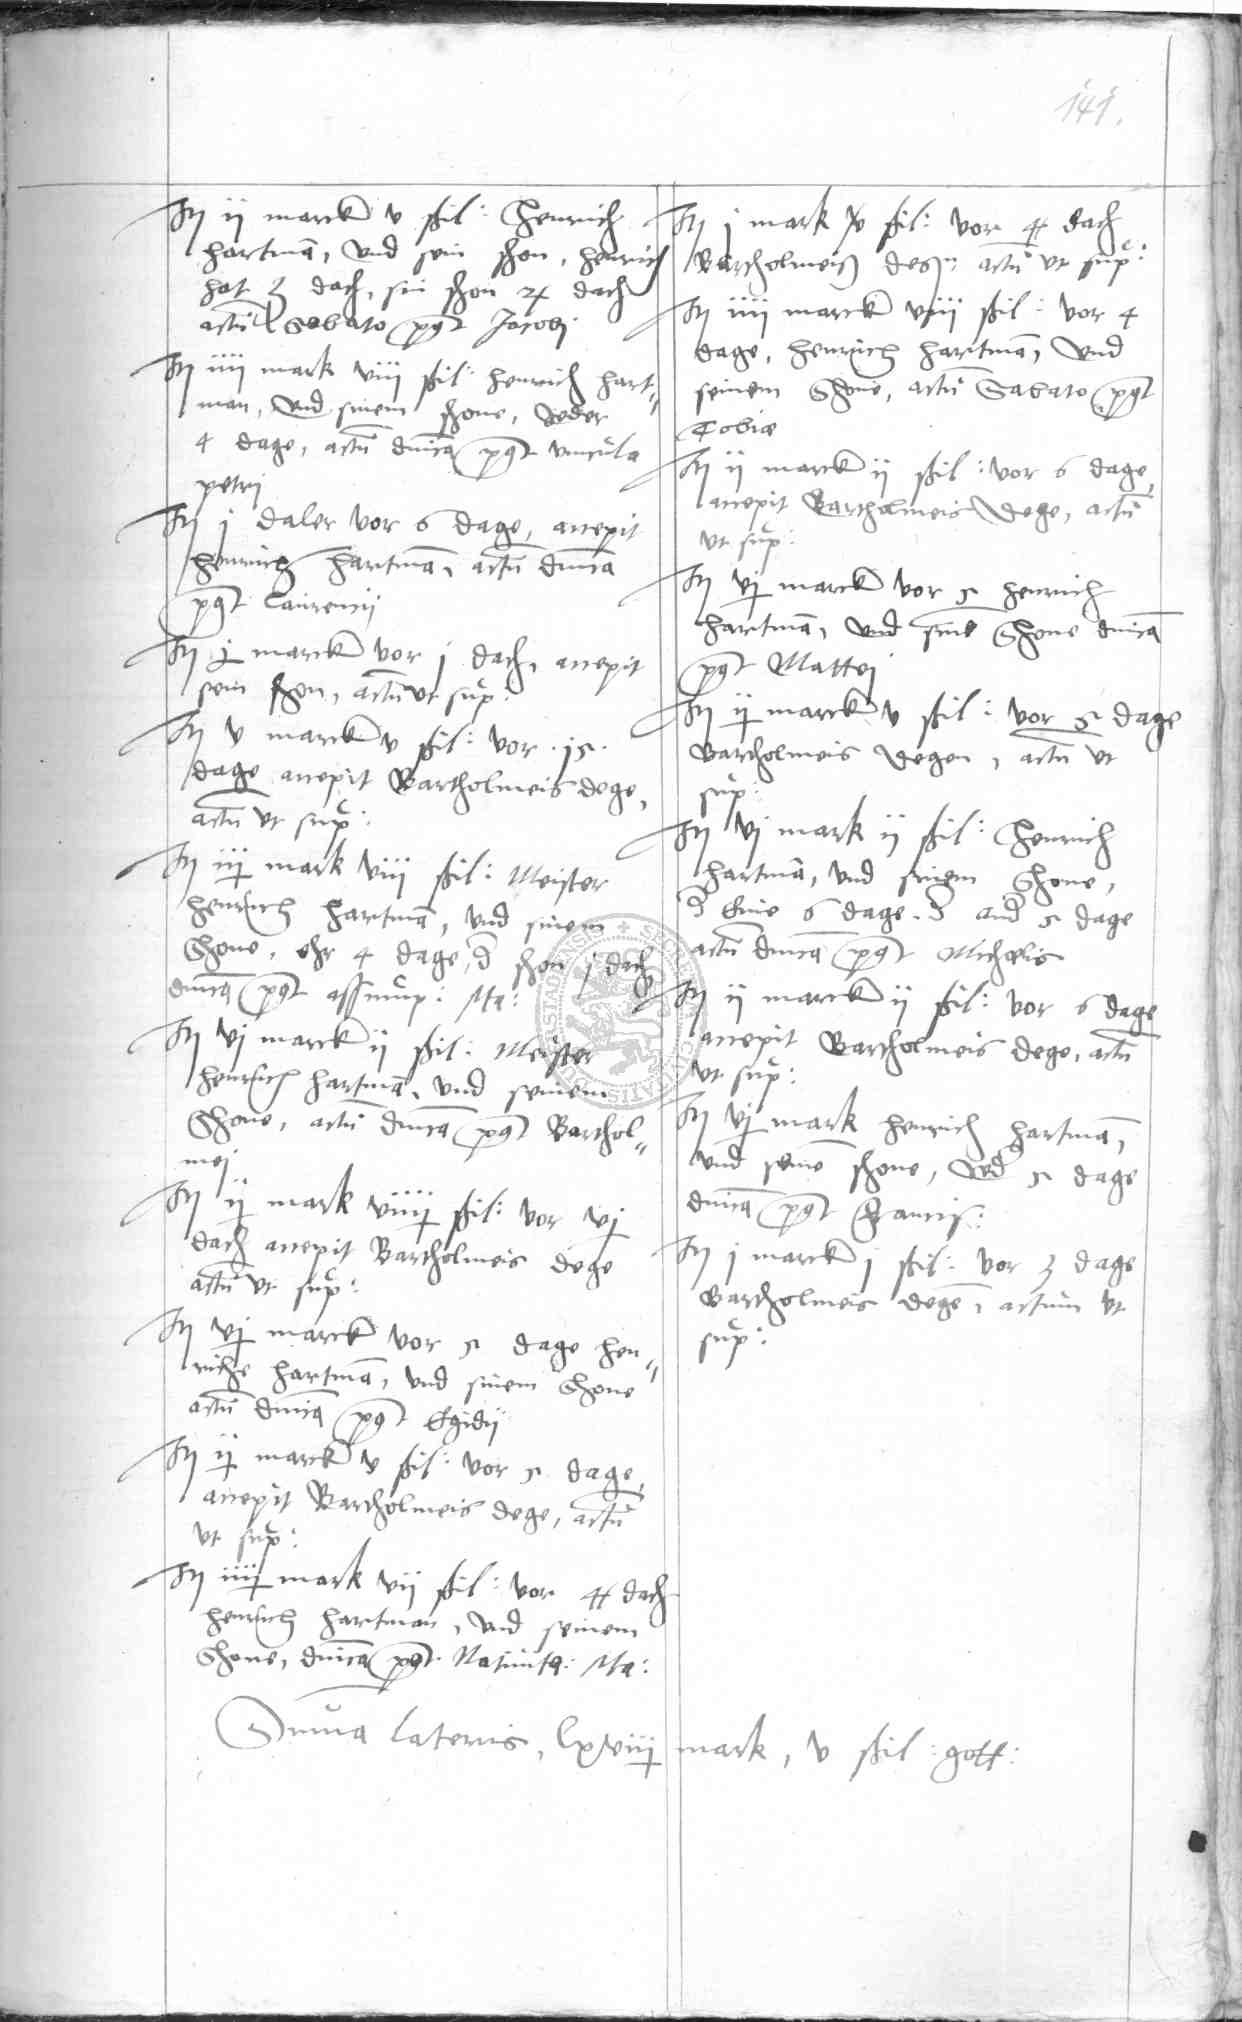 141.
Itz ij marck v ßil: Henrich
hartmā, vnd sein shon, henrich
hat 3 dach, sin shon 2½ dach
actū Sabato post Jacobi
Itz iiij mark viij ßil: henrich hart=
man, vnd sinem shone, Jeder
4 dage, actū dnīca post vincula
petri
Itz j daler vor 6 dage, accepit
henrich hartmā, actū dnīca
post laurencij
Itz marck vor j dach, accepit
sein shon, actū vt sup:
Itz v marck v ßil: vor .15.
dage accepit Bartholmeis dege,
actū vt sup:
Itz iij mark viij ßil: Meister
henrich hartmā, vnd sinem
Shone, ehr 4 dage, d shon j dach
dnīca post assump: Ma:
Itz vj marck ij ßil: Meister
henrich hartmā, vnd seinem
Shone, actū dnīca post Barthol=
mej
Itz ij mark viiij ßil: vor vj
dach accepit Bartholmeis dege
actū vt sup:
Itz vj marck vor 5 dage hen=
riche hartmā, vnd sinem Shone
actū dnīca post Egidij
Itz ij marck v ßil: vor 5 dage,
accepit Bartholmeis dege, actū
vt sup:
Itz iiij mark vij ßil: vor 4 dach
henrich hartman, vnd seinem
Shone, dnīca post Natiuita: Ma:
Itz j mark ßil: vor 4 dach
Bartholmeis actū vt sup:
Itz iiij marck viij ßil: vor 4
dage, henrich hartmā, vnd
seinem Shone, actū Sabato post
Tobiæ
Itz ij marck ij ßil: vor 6 dage,
accepit Bartholmeis dege, actū
vt sup:
Itz vj marck vor 5 henrich
hartmā, vnd Shone dnīca
post Mattej
Itz ij marck v ßil: vor 5 dage
Bartholmeis degen, actū vt
sup:
Itz vj mark ij ßil: Henrich
hartmā, vnd sinem Shone,
d Eine 6 dage. d and 5 dage
actū dnīca post Michælis
Itz ij marck ij ßil: vor 6 dage
accepit Bartholmeis dege, actū
vt sup:
Itz vj mark henrich hartmā,
vnd seinē shone, Jed 5 dage
dnīca post Francis:
Itz j marck j ßil: vor 3 dage
Bartholmeis degē, actum vt
sup:
Suma lateris, lxviij mark, v ßil: gott: